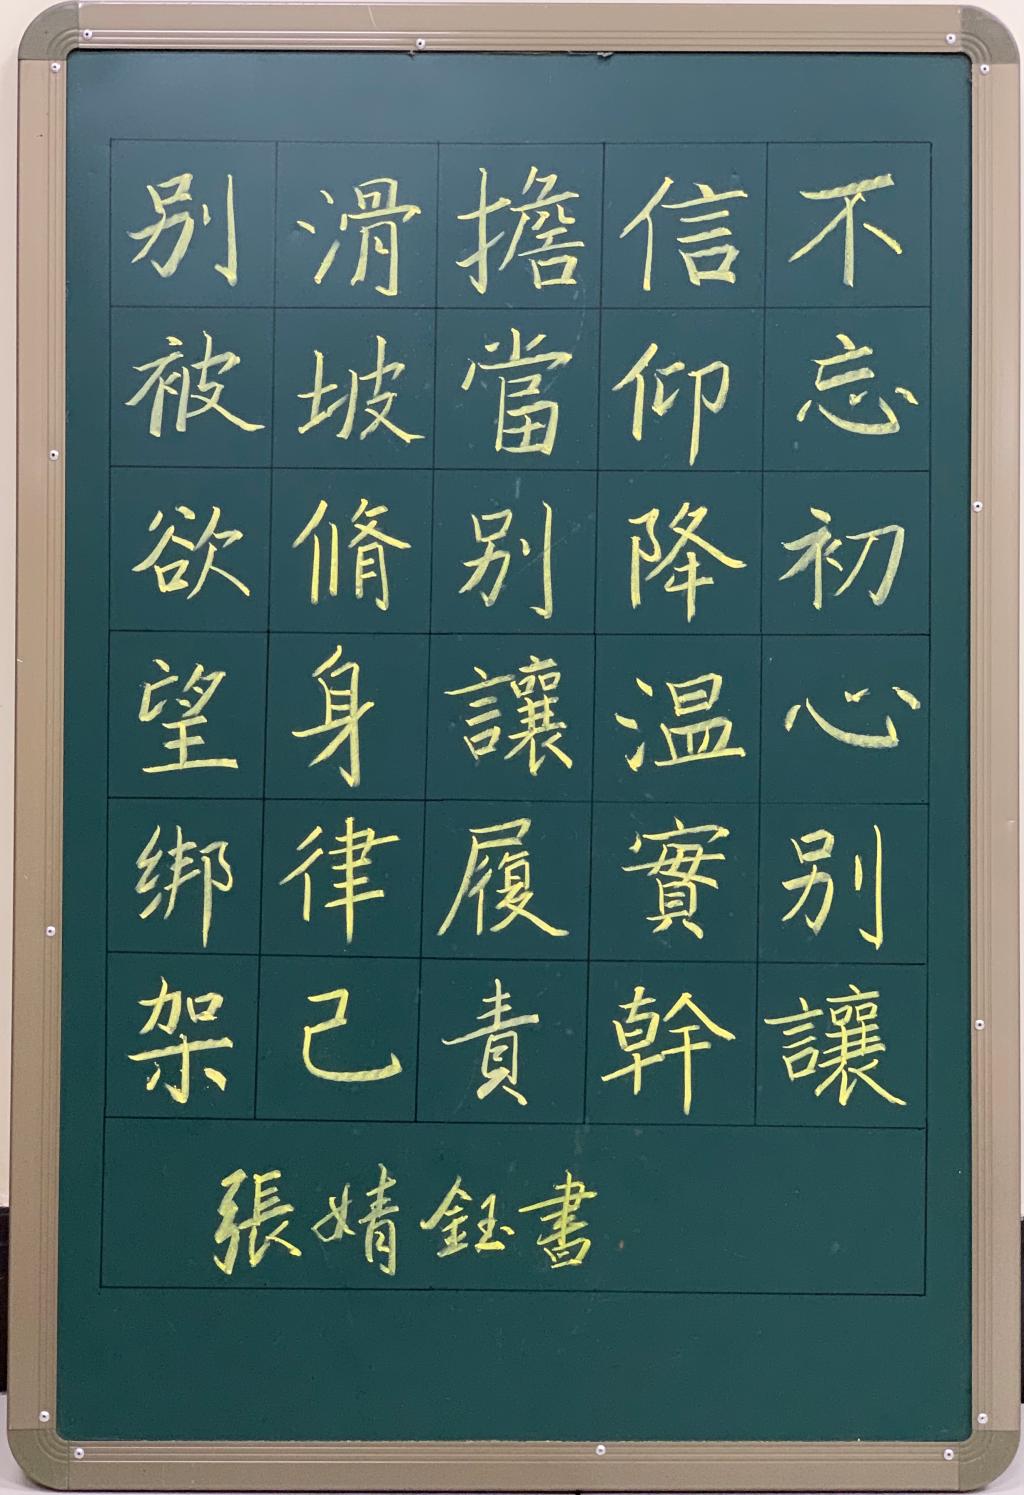 不忘初心別讓
信仰降温實幹
擔當別讓履責
滑坡脩身律己
別被欲望绑架
張婧鈺書